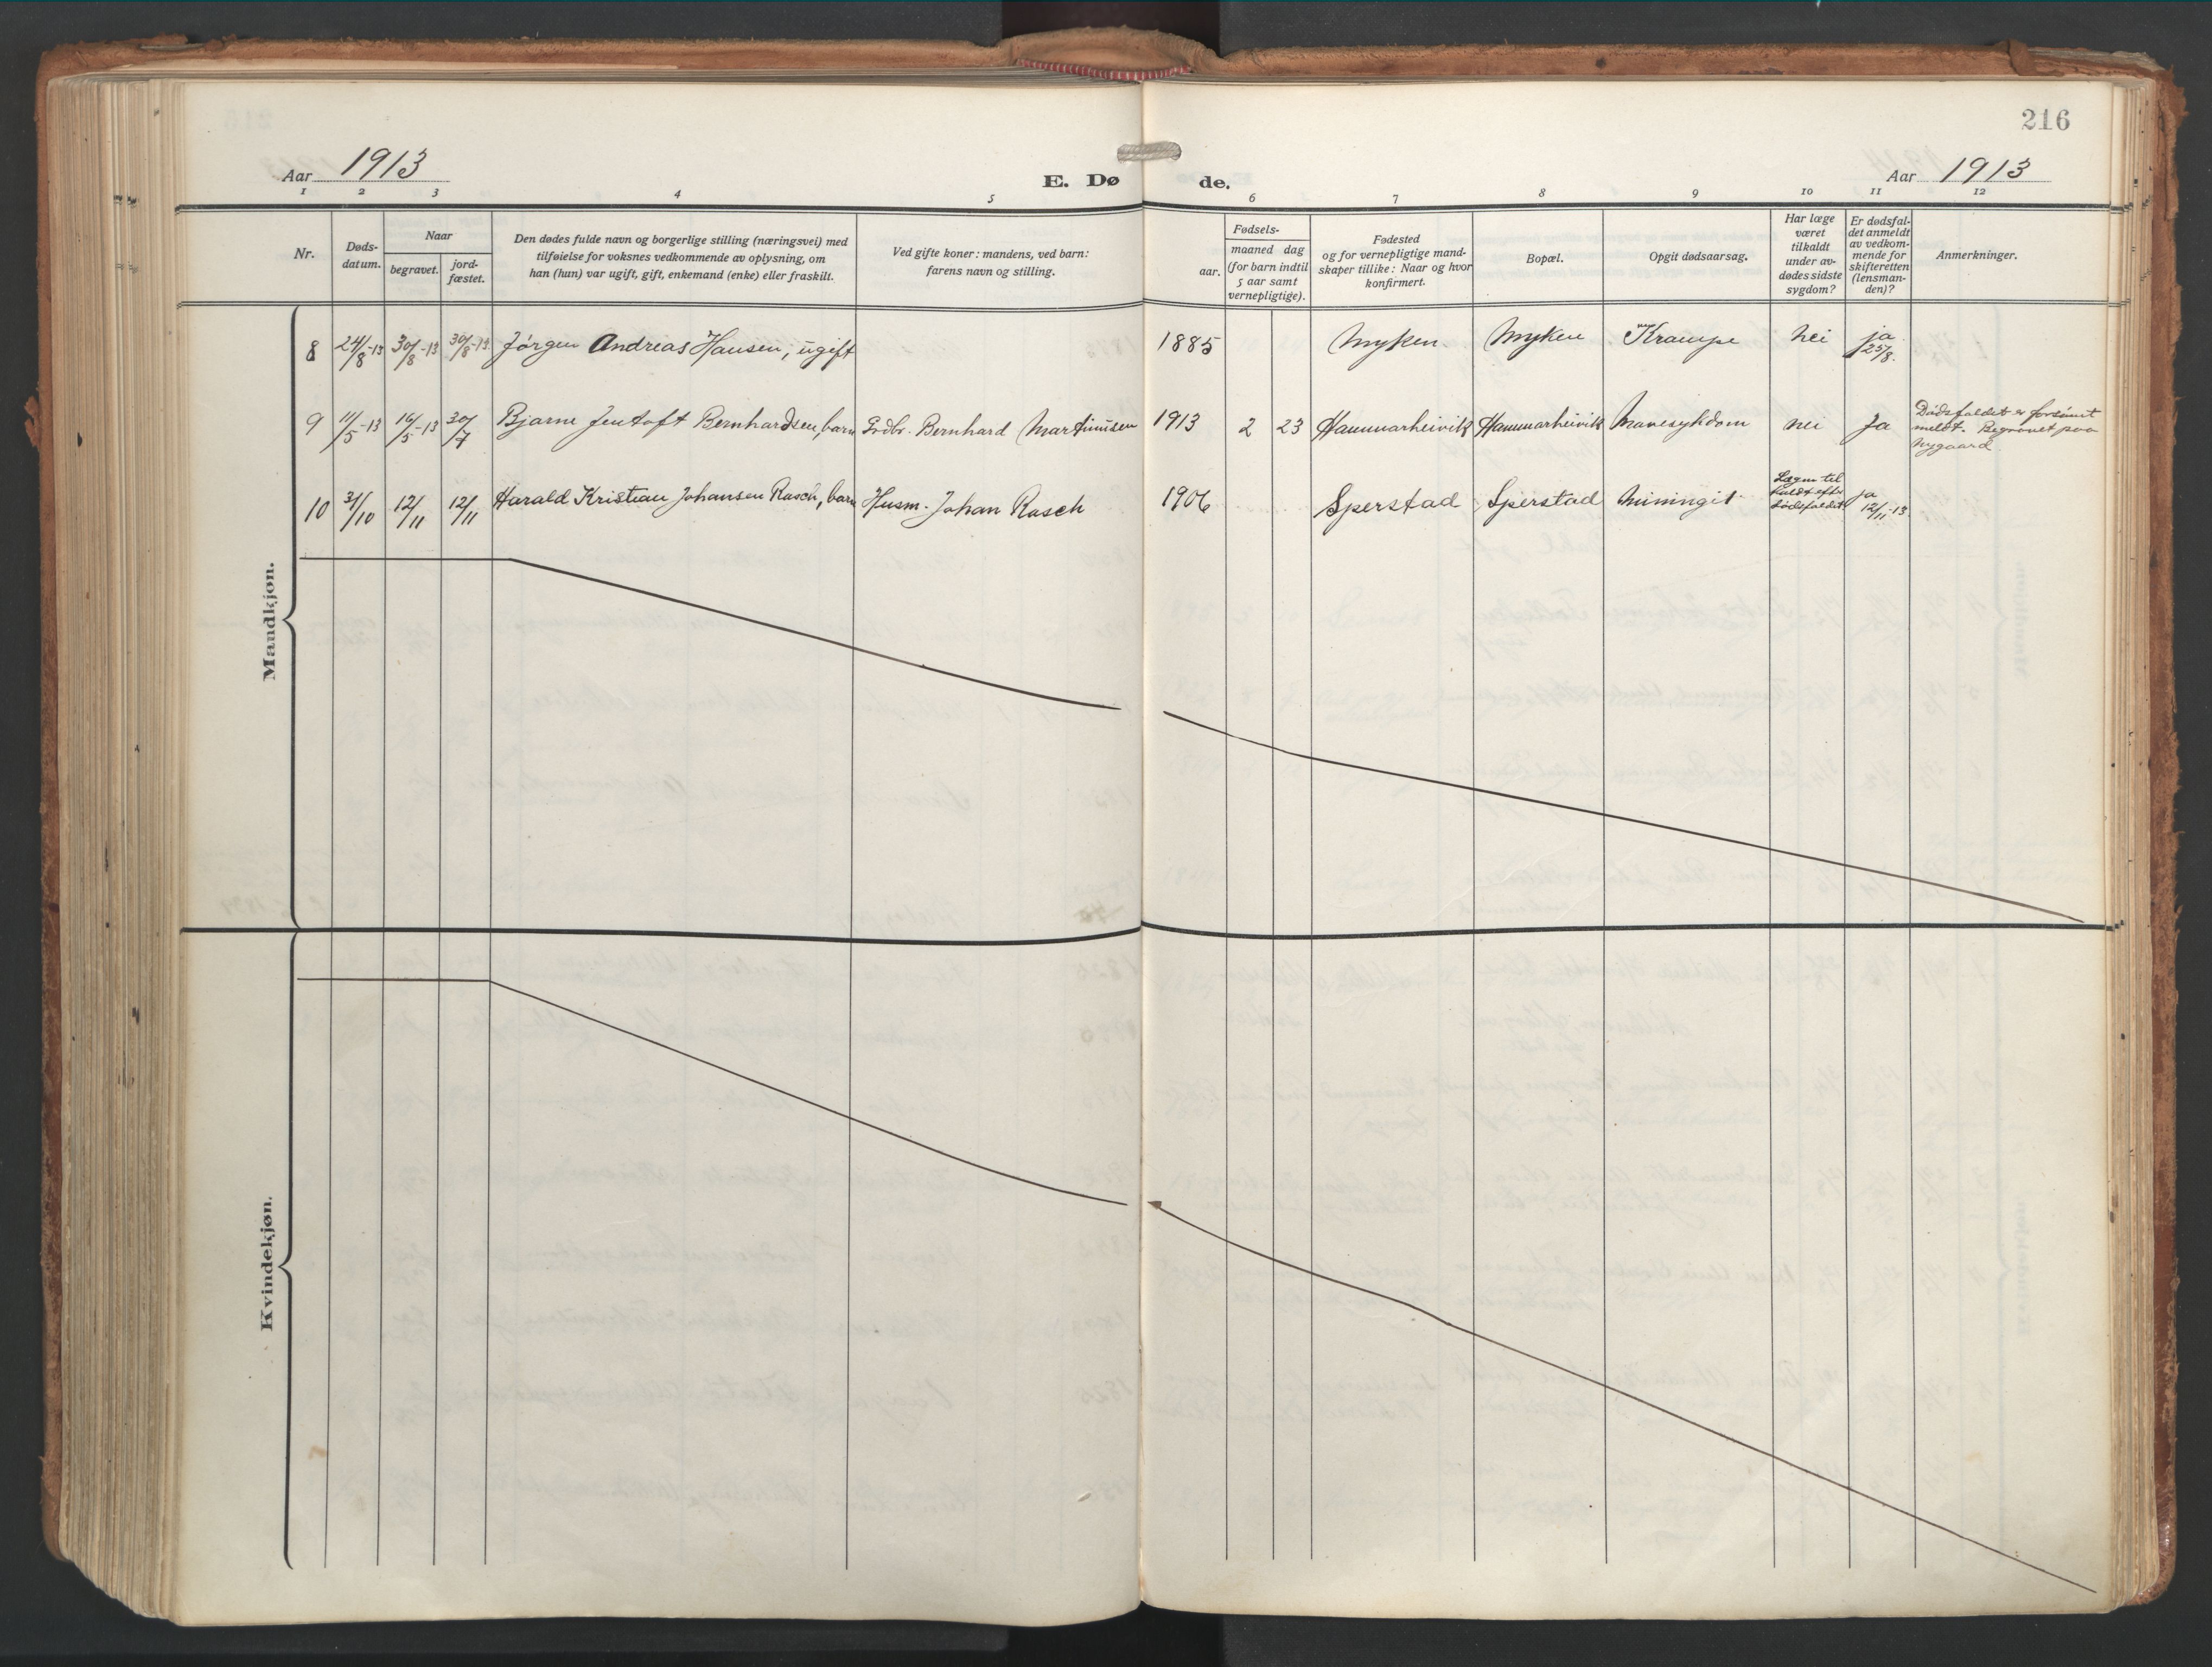 216
Aar 1913
E. Dø
de.
Aar 1913
1 2 3 4 5 6 7 8 9 10 11 12
Nr.
Døds-
datum.
Naar
begravet.
jord-
fæstet.
Den dødes fulde navn og borgerlige stilling (næringsvei) med
tilføielse for voksnes vedkommende av oplysning, om
han (hun) var ugift, gift, enkemand (enke) eller fraskilt.
Ved gifte koner: mandens, ved barn:
farens navn og stilling.
Fødsels-
aar.
maaned dag
(for barn indtil
5 aar samt
vernepligtige).
Fødested
og for vernepligtige mand-
skaper tillike: Naar og hvor
konfirmert.
Bopæl.
Opgit dødsaarsag.
Har læge
været
tilkaldt
under av-
dødes sidste
sygdom?
Er dødsfal-
det anmeldt
av vedkom-
mende for
skifteretten
(lensman-
den)?
Anmerkninger.
Mandkjøn.
8 24/8-13 30/8-13 30/8-13 Jørgen Andreas Hansen, ugift 1885 Myken Myken Krampe nei ja
25/8.
9 11/5-13 16/5-13 30/7 Bjarne Jentoft Bernhardsen, barn Grdbr. Bernhard Martinusen 1913 2 23 Hammarheivik Hammarheivik Mavesykdom nei Ja
Dødsfaldet er forsømt
meldt. Begravet paa
Nygaard
10 31/10 12/11 12/11 Harald Kristian Johansen Rasch, barn Husm. Johan Rasch 1906 Sperstad Sperstad Miningit
Lægen til
kaldt efter
dødsfaldet
ja
12/11-13.
Kvindekjøn.